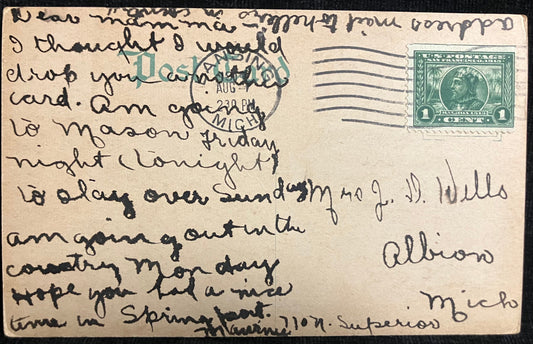 Dear mamma -
I thought I would
drop you another
card. Am going
to Mason Friday
night (tonight)
to stay over Sunday
am going out in the
country Monday
Hope you had a nice
time in Springport.
address mail to
in
Post Card
LANSING
AUG
230 PM
MICH
U.S. POSTAGE
SAN FRANCISCO 1915
1 CENT 1
Mrs J. D. Wells
Albion
Mich
710 N. Superior